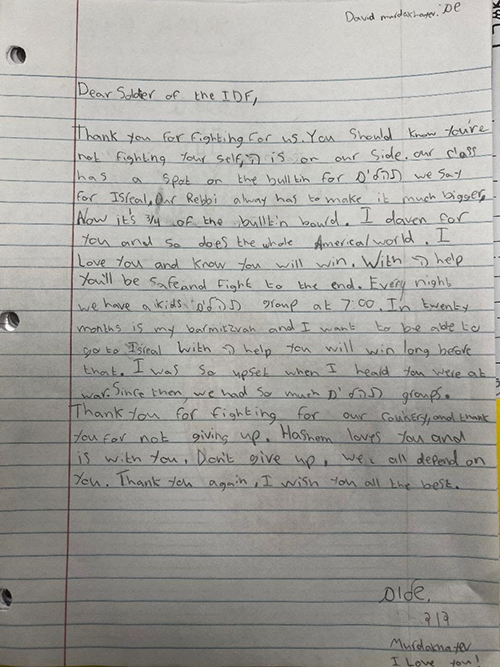 David murdakhayev. 5E
Dear Solder of the IDF,
Thank you for fighting for us. You should know you're
not fighting your self, ה' is on our side. our class
has a spot on the bulltin for תהלים we say
for Isreal, Our Rebbi alway has to make it much bigger,
Now it's 3/4 of the bullt'n bourd. I daven for
you and so does the whole America/world. I
Love you and know you will win. With ה' help
You'll be safe and fight to the end. Every night
we have a kids תהלים group at 7:00. In twenty
months is my barmitzvah and I want to be able to
go to Isreal with ה' help you will win long before
that. I was so upset when I heard you were at
war. Since then, we had so much תהלים groups.
Thank you for fighting for our country, and thank
you for not giving up. Hashem loves you and
is with you. Don't give up, we all depend on
you. Thank you again, I wish you all the best.
דוד
Murdakhayev
I Love you!